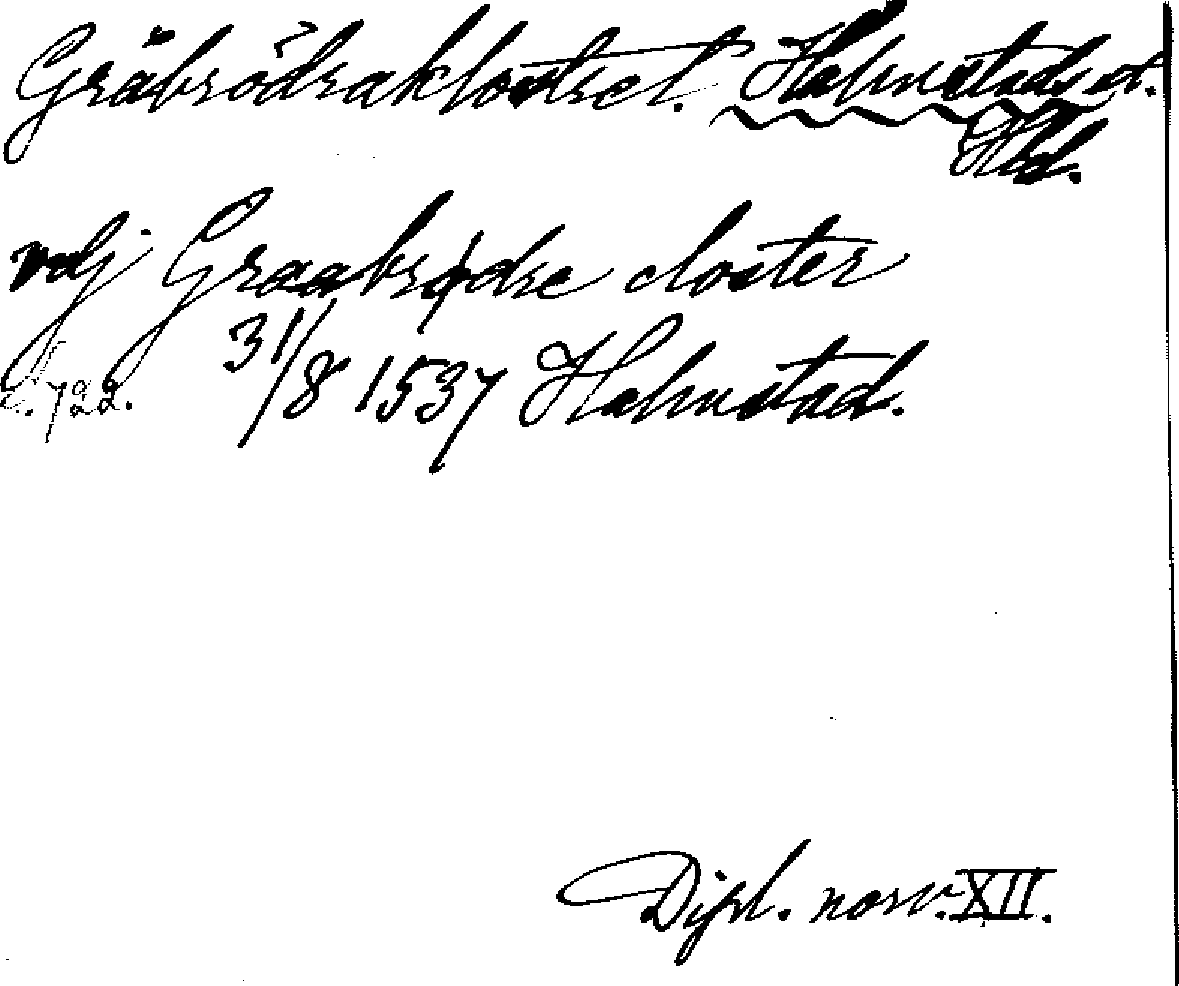 Gråbrödraklostret. Halmstads st.
Hld.
vdj Graabrødre closter
31/8 1537 Halmstad.
s. 722.
Dipl. norv. XII.